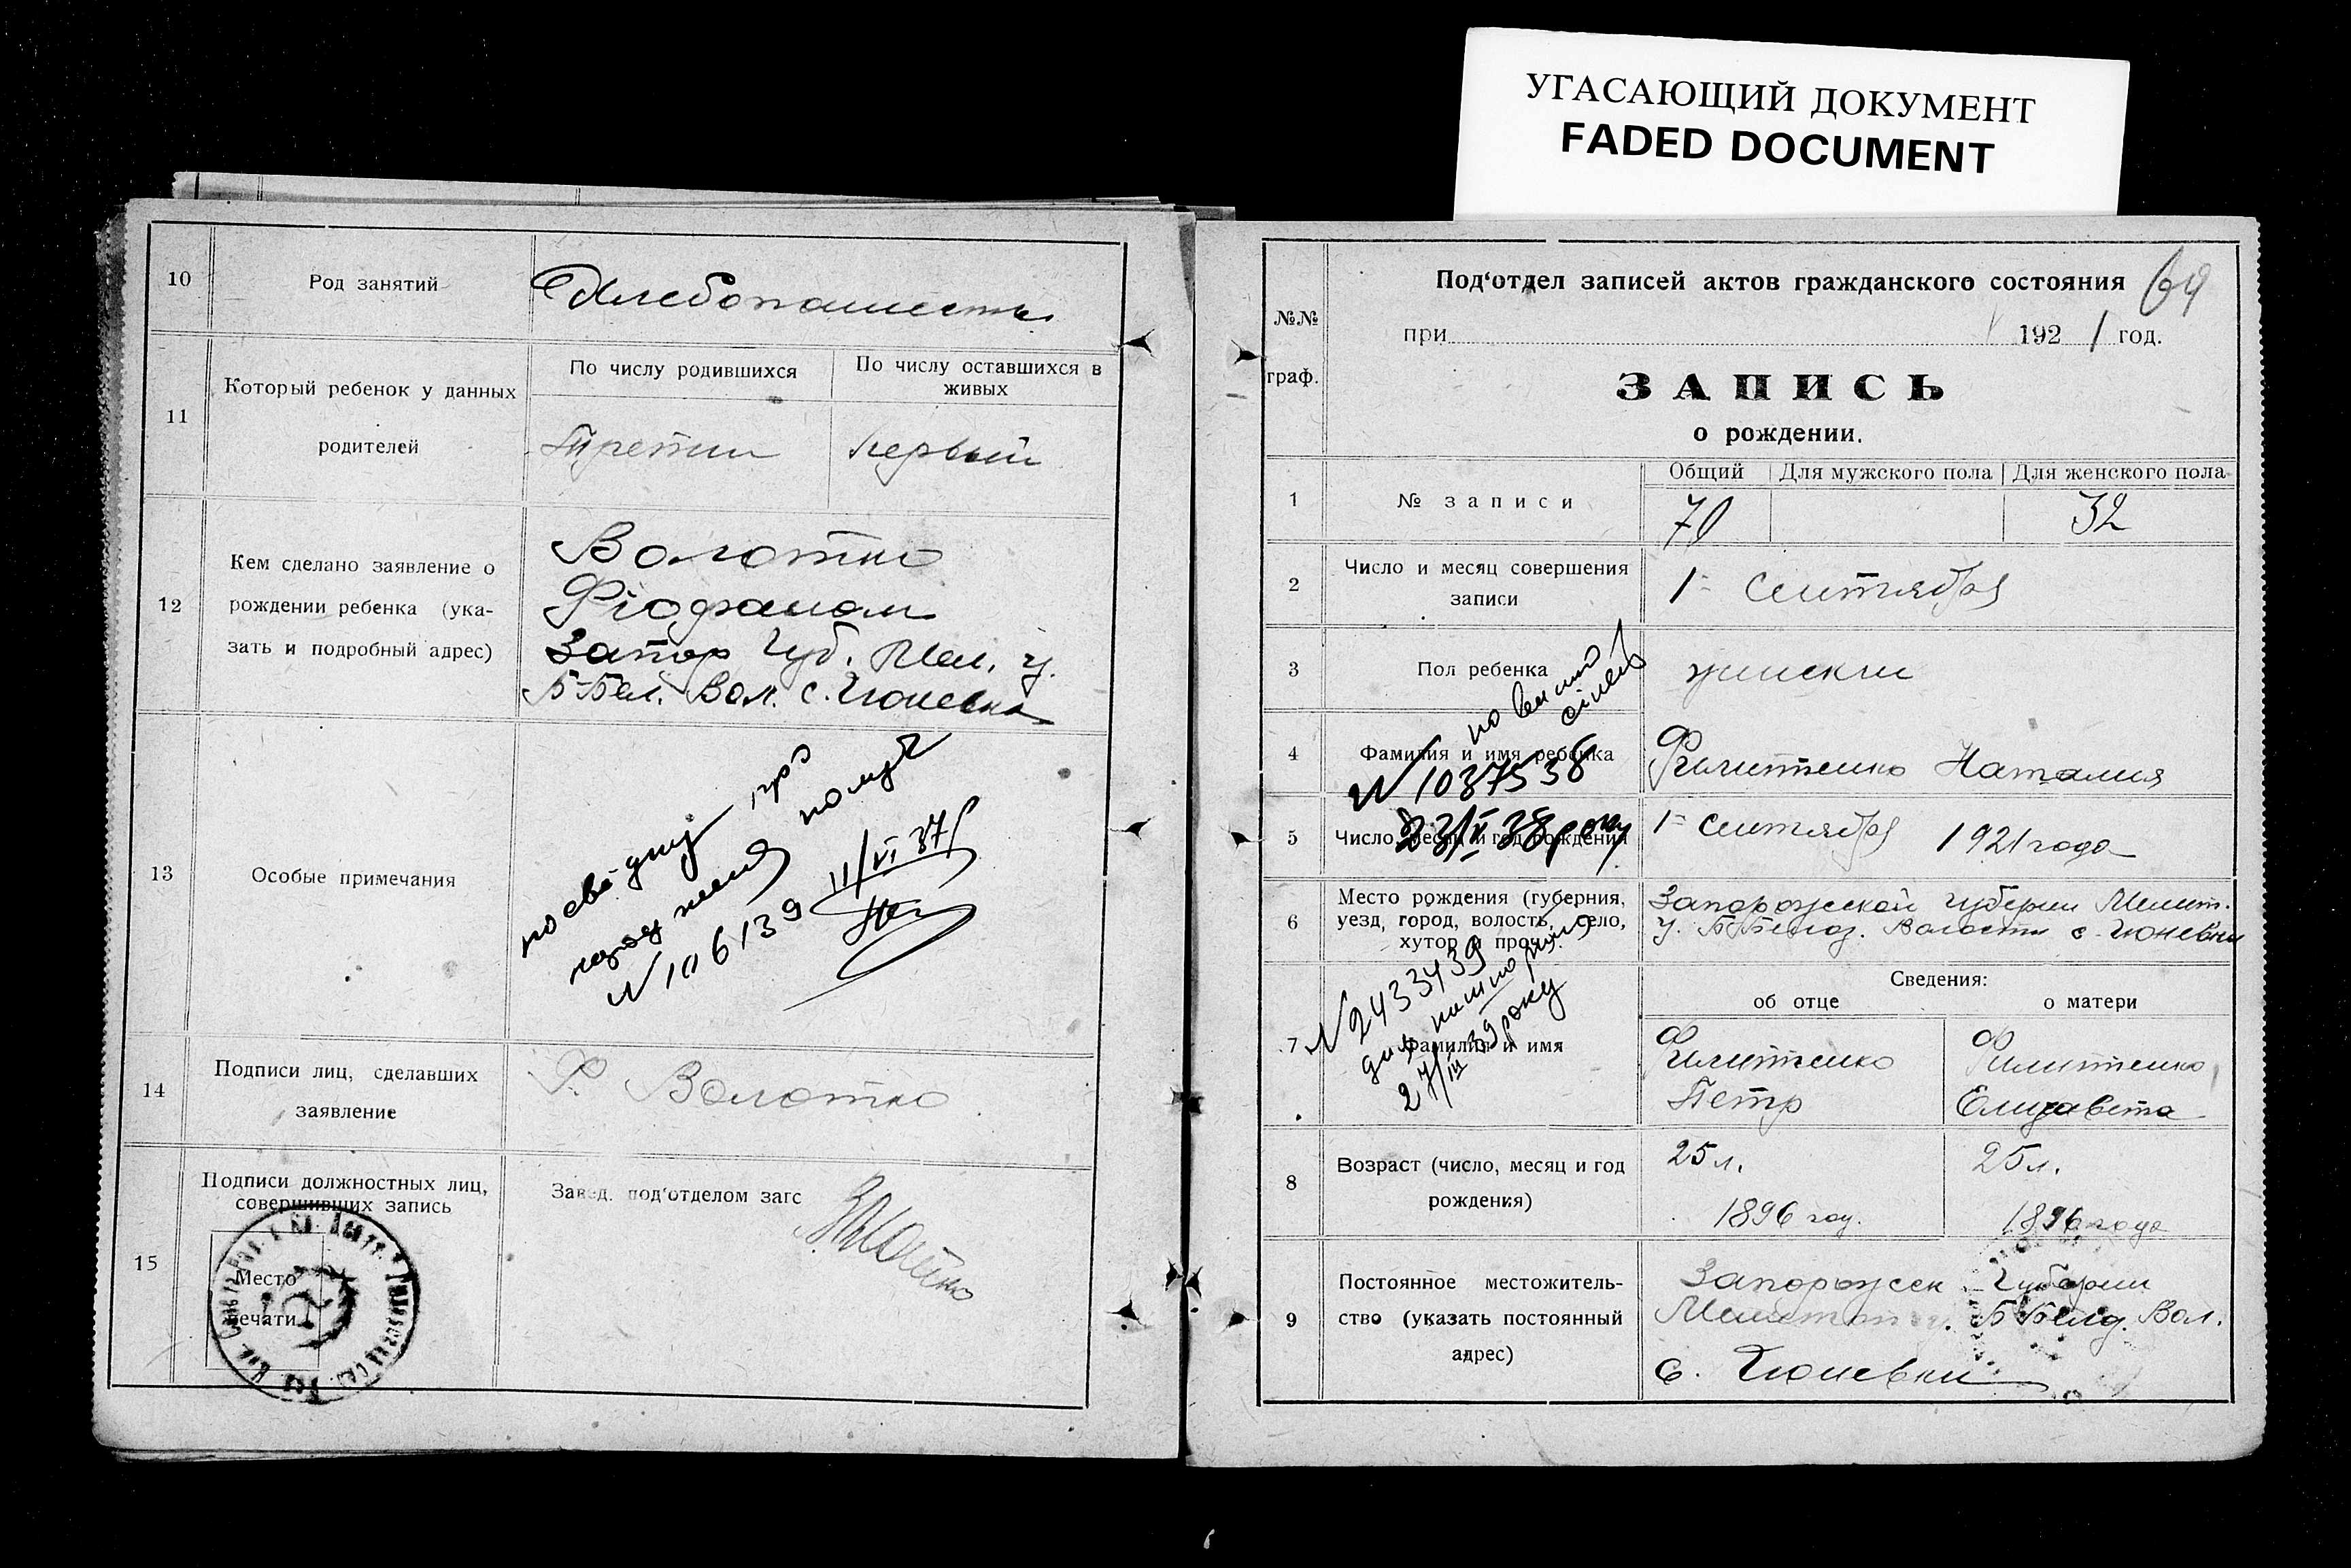 УГАСАЮЩИЙ ДОКУМЕНТ
FADED DOCUMENT
10
Род занятий
Хлебопашесть
11
Который ребенок у данных
родителей
По числу родившихся
По числу оставшихся в
живых
Третии
первый
12
Кем сделано заявление о
рождении ребенка (ука-
зать и подробный адрес)
Волотко
Фiофаном
Запор Губ. Мел. у.
Б-Бел. Вол. с. Тюневка
13
Особые примечания
N 106139 11/VI 37
14
Подписи лиц, сделавших
заявление
Ф. Волотко
15
Подписи должностных лиц,
совершивших запись
Место
печати
Завед. под‘отделом загс
69
№№
граф.
Под‘отдел записей актов гражданского состояния
при 1921 год.
ЗАПИСЬ
о рождении.
1
№ записи
Общий
Для мужского пола
Для женского пола
70
32
2
Число и месяц совершения
записи
1= сентября
3
Пол ребенка
женскии
4
Фамилия и имя ребенка
Филипенко Наталия
N 1037538
5
Число, месяц и год рождения
1= сентября 1921 года
23/V 38 року
6
Место рождения (губерния,
уезд, город, волость, село,
хутор и проч.).
Запорожской губернии Мелит.
у. Б-Белоз. Волости с. Тюневки
N 2433439
27/III 39 року
7
Фамилия и имя
Сведения:
об отце
о матери
Филипенко
Петр
Филипенко
Елизавета
8
Возраст (число, месяц и год
рождения)
25 л.
1896 году.
25 л.
1896 года
9
Постоянное местожитель-
ство (указать постоянный
адрес)
Запорожск Губернии
Б-Белоз. Вол.
с. Тюневки